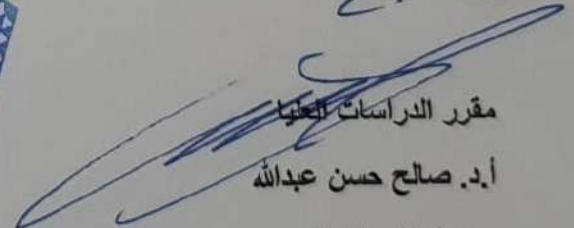 مقرر الدراسات العليا
أ.د. صالح حسن عبدالله